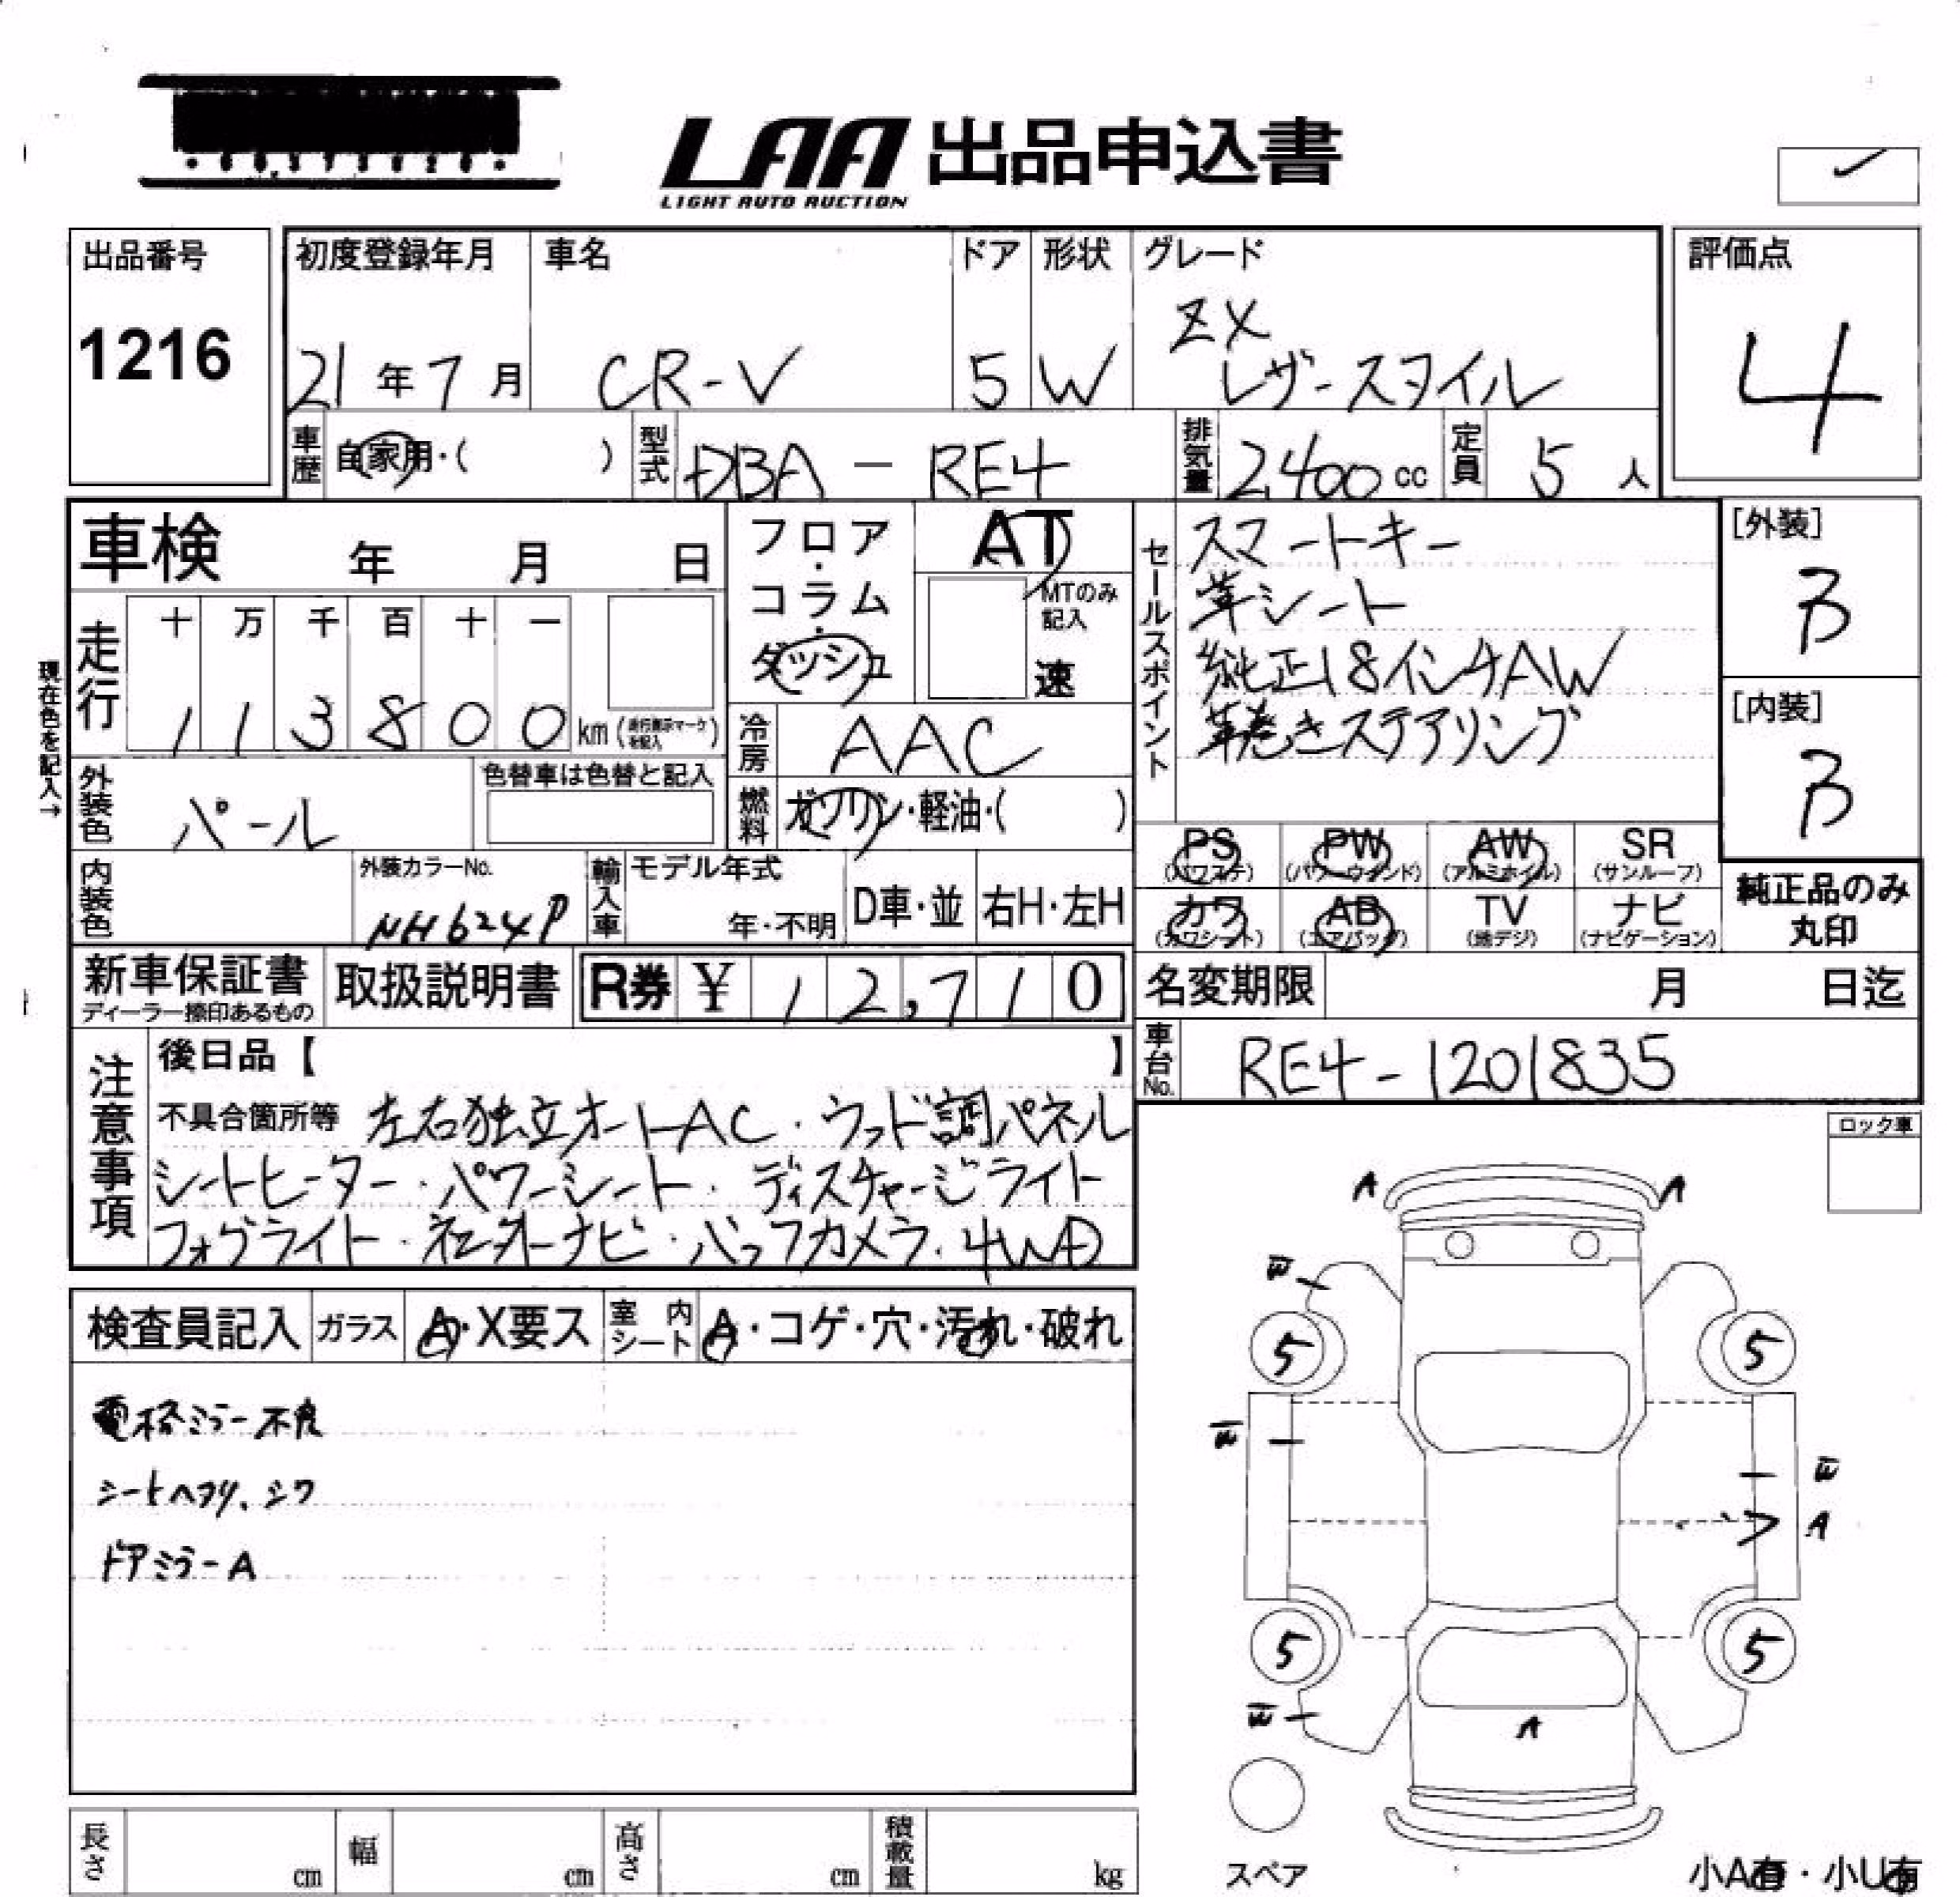 LAA 出品申込書
LIGHT AUTO AUCTION
出品番号
1216
初度登録年月
21年7月
車名
CR-V
ドア
5
形状
W
グレード
ZX
レザースタイル
評価点
4
車歴
自家用・( )
型式
DBA - RE4
排気量
2400 cc
定員
5 人
車検 年 月 日
フロア・コラム・ダッシュ
AT
MTのみ記入
速
現在色を記入→
走行
十 万 千 百 十 一
1 1 3 8 0 0 km
(走行表示マークを記入)
冷房
AAC
セールスポイント
スマートキー
革シート
純正18インチAW
革巻きステアリング
[外装]
B
[内装]
B
外装色
パール
色替車は色替と記入
燃料
ガソリン・軽油・( )
PS (パワステ)
PW (パワーウィンド)
AW (アルミホイル)
SR (サンルーフ)
カワ (カワシート)
AB (エアバッグ)
TV (地デジ)
ナビ (ナビゲーション)
純正品のみ丸印
内装色
外装カラーNo.
NH624P
輸入車
モデル年式
年・不明
D車・並
右H・左H
新車保証書
ディーラー捺印あるもの
取扱説明書
R券 ¥ 12,710
名変期限 月 日迄
車台No.
RE4-1201835
注意事項
後日品【 】
不具合箇所等 左右独立オートAC・ウッド調パネル
シートヒーター・パワーシート・ディスチャージライト
フォグライト・社外ナビ・バックカメラ・4WD
ロック車
検査員記入 ガラス A・X要ス 室内シート A・コゲ・穴・汚れ・破れ
電格ミラー不良
シートヘタリ、シワ
ドアミラーA
A A
W
5 5
W
W
A
5 5
W
A
スペア
長さ cm 幅 cm 高さ cm 積載量 kg
小A有・小U有